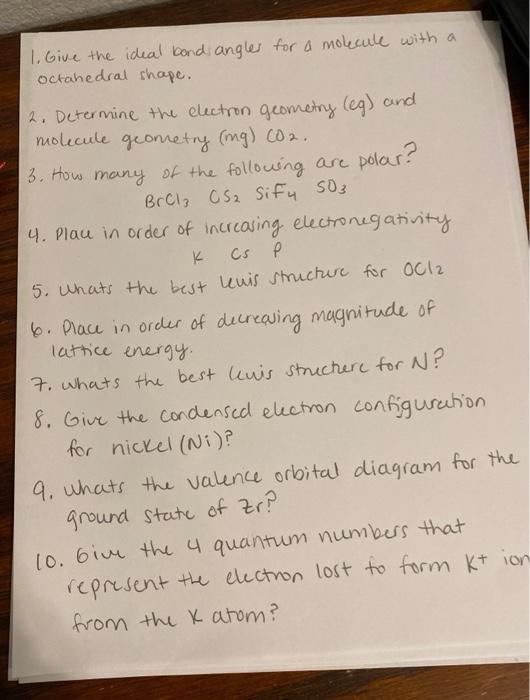 1. Give the ideal bond angles for a molecule with a
octahedral shape.
2. Determine the electron geometry (eg) and
molecule geometry (mg) CO2.
3. How many of the following are polar?
BrCl3 CS2 SiF4 SO3
4. Place in order of increasing electronegativity
K Cs P
5. Whats the best lewis structure for OCl2
6. Place in order of decreasing magnitude of
lattice energy.
7. Whats the best lewis structure for N?
8. Give the condensed electron configuration
for nickel (Ni)?
9. Whats the valence orbital diagram for the
ground state of Zr?
10. Give the 4 quantum numbers that
represent the electron lost to form K+ ion
from the K atom?